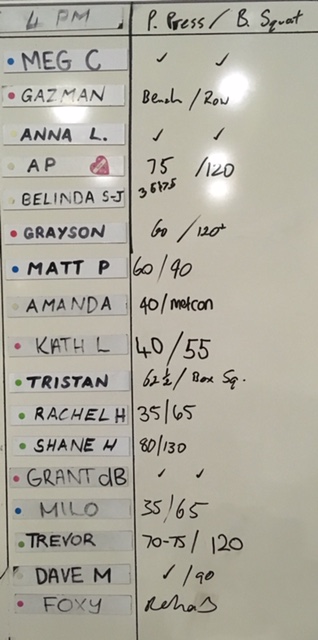 4 PM P. Press / B. Squat
MEG C ✓ ✓
GAZMAN Bench / Row
ANNA L. ✓ ✓
AP 75 / 120
BELINDA S-J 35/75
GRAYSON 60 / 120+
MATT P 60 / 90
AMANDA 40 / metcon
KATH L 40 / 55
TRISTAN 62½ / Box Sq.
RACHEL H 35 / 65
SHANE H 80/130
GRANT dB ✓ ✓
MILO 35 / 65
TREVOR 70-75 / 120
DAVE M ✓ / 90
FOXY Rehab